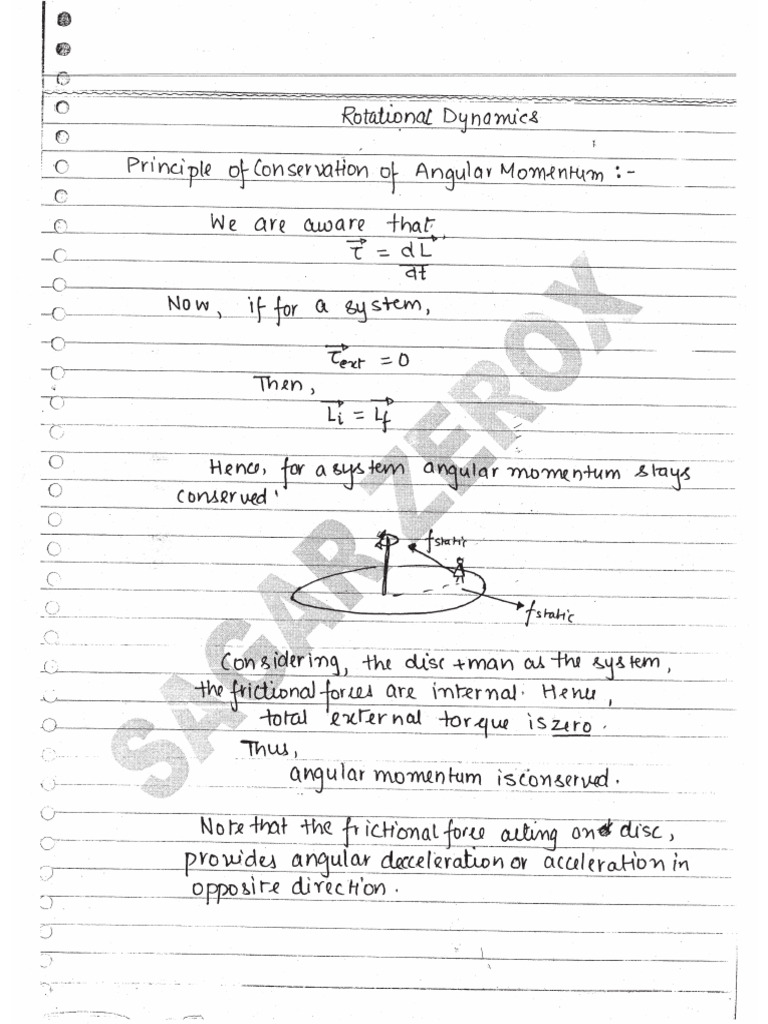 Rotational Dynamics
Principle of Conservation of Angular Momentum :-
We are aware that,
τ⃗ = dL⃗
dt
Now, if for a system,
τ⃗ext = 0
Then,
L⃗i = L⃗f
Hence, for a system angular momentum stays
conserved.
fstatic
fstatic
Considering, the disc + man as the system,
the frictional forces are internal. Hence,
total external torque is zero.
Thus,
angular momentum is conserved.
Note that the frictional force acting on disc,
provides angular decceleration or acceleration in
opposite direction.
SAGAR ZEROX